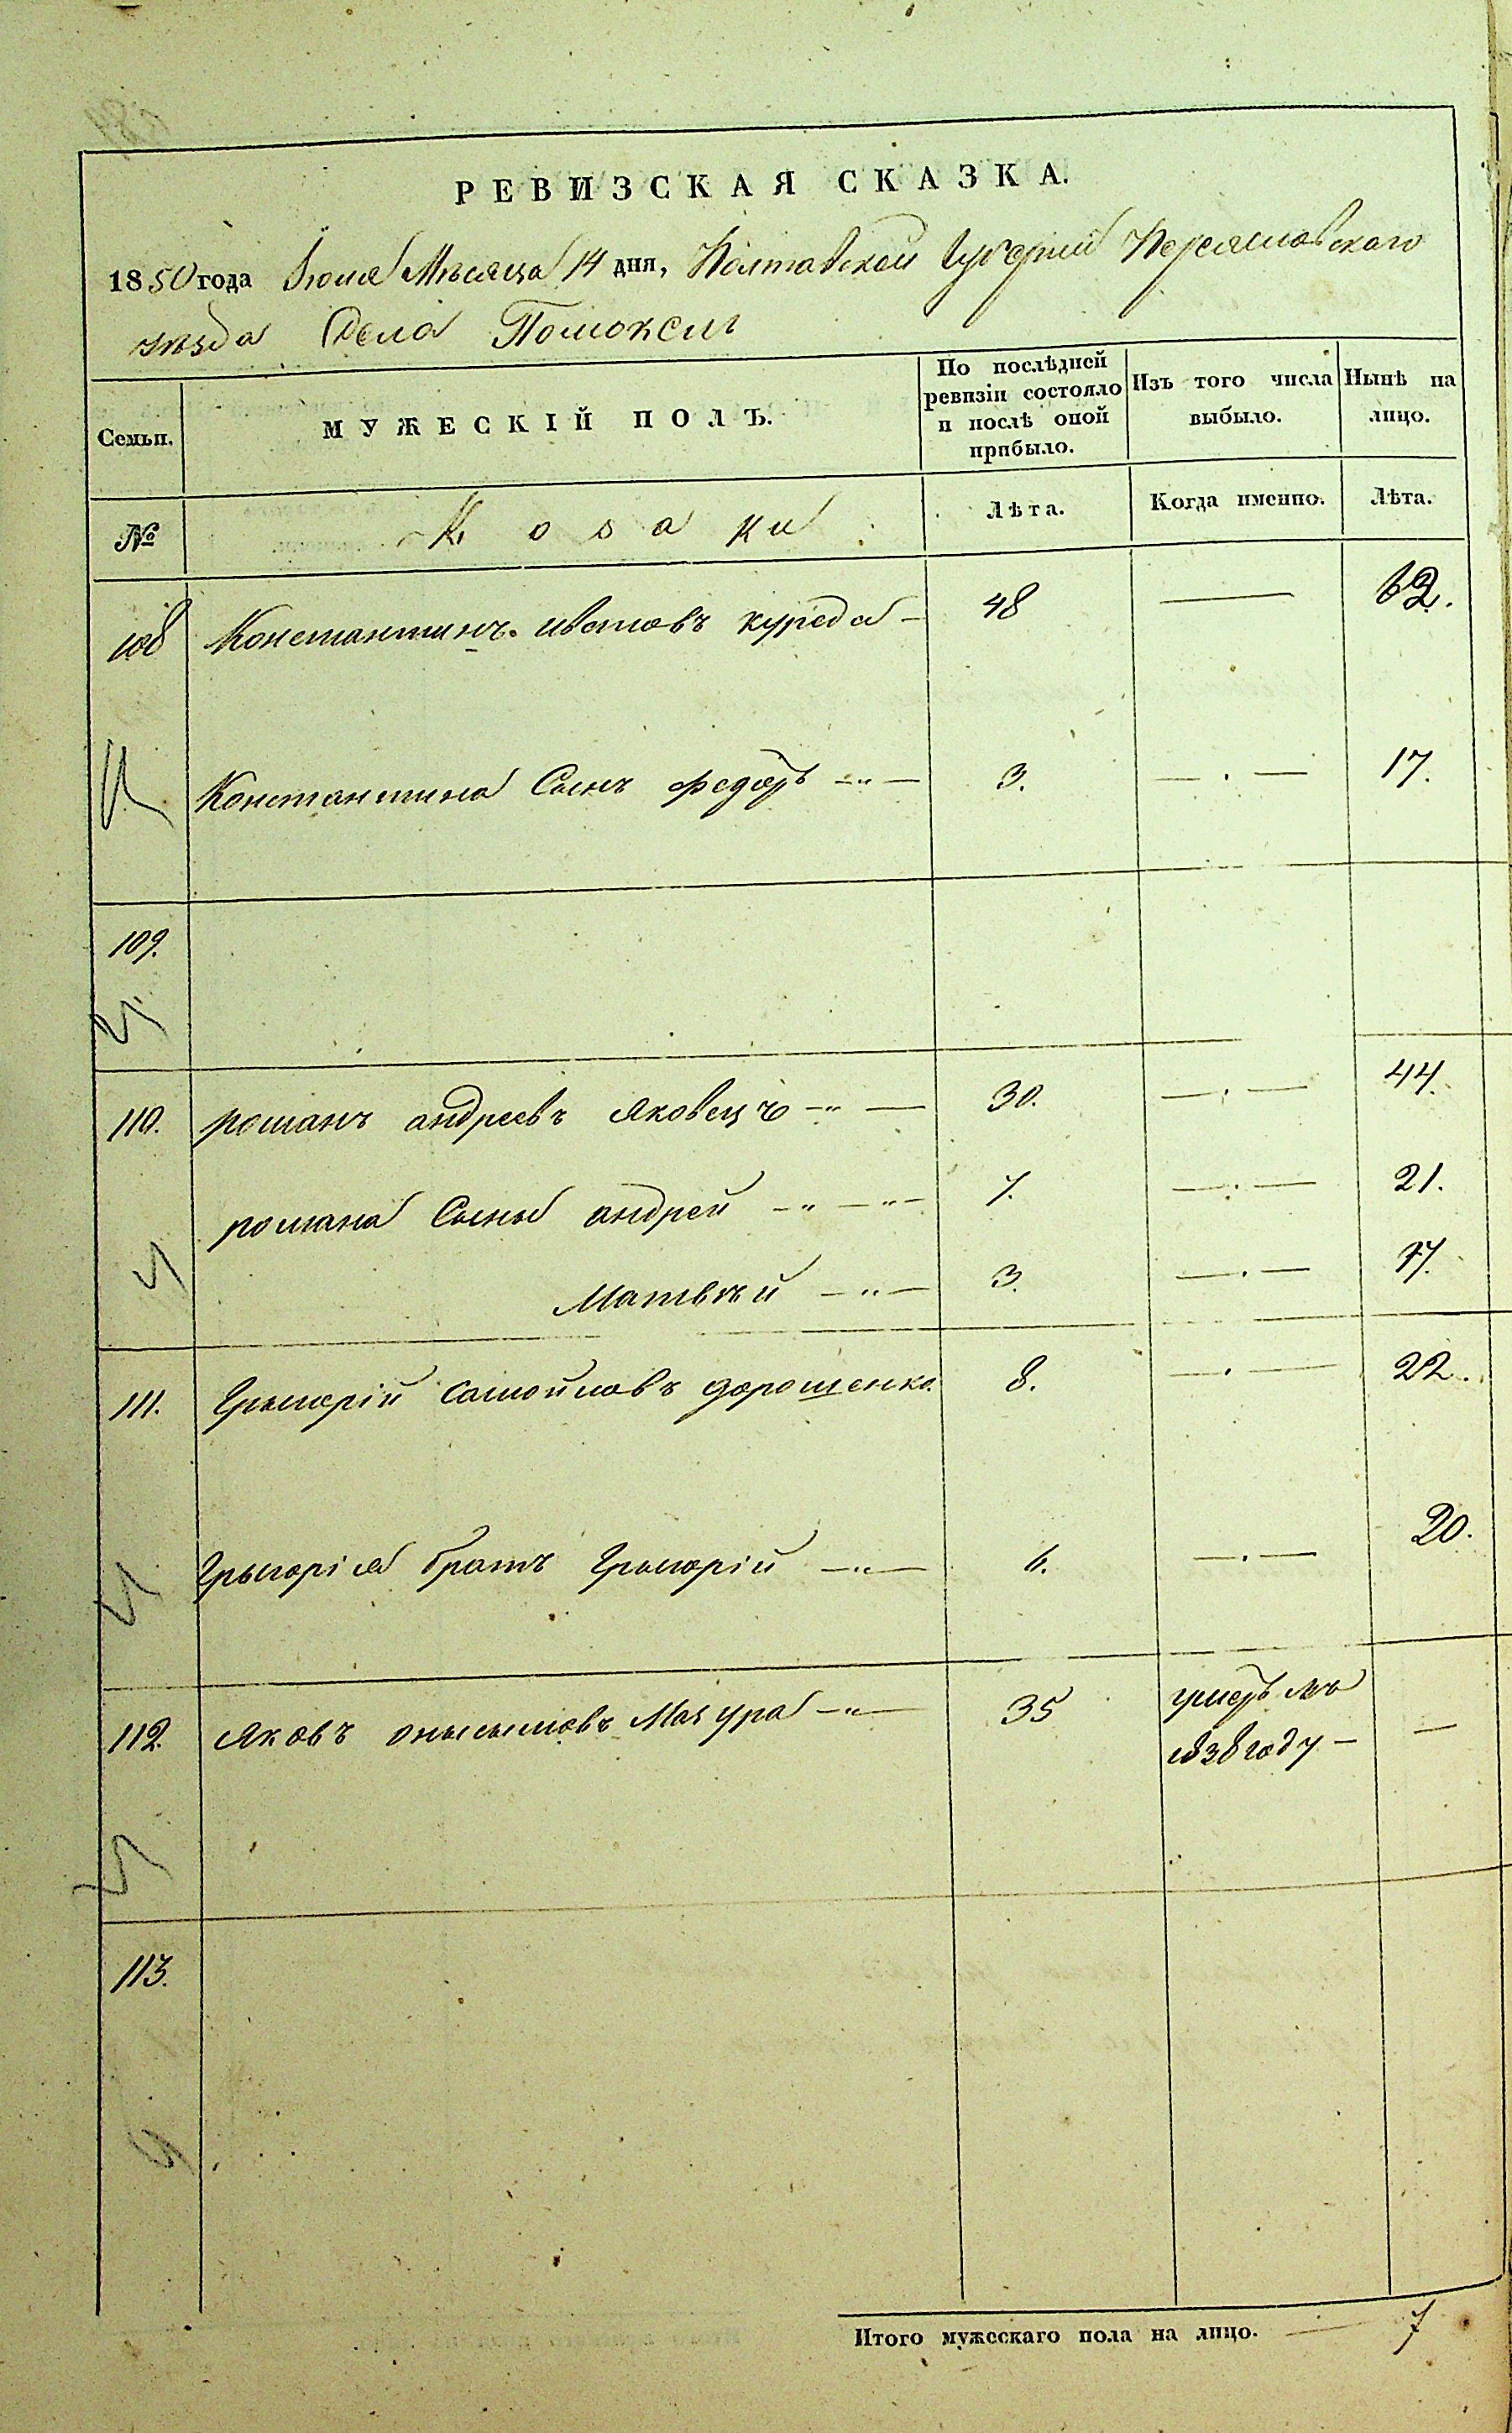 РЕВИЗСКАЯ СКАЗКА.
1850 года Іюня Мѣсяца 14 дня, Полтавской Губерніи Переяславскаго
уѣзда Села Помоклиг
Семьи.
МУЖЕСКІЙ ПОЛЪ.
По послѣдней ревизіи состояло и послѣ оной прибыло.
Изъ того числа выбыло.
Нынѣ на лицо.
№ Козаки Лѣта. Когда именно. Лѣта.
108 Константинъ ивановъ куреда — 48 — 62.
Константина Сынъ федоръ 3. — 17.
109.
110. романъ андреевъ яковецъ 30. — 44.
романа Сыны андрей 7. — 21.
Матвѣй 3. — 17.
111. Грыгорій самойловъ дорошенко. 8. — 22.
Грыгорія братъ Грыгорій 6. — 20.
112. яковъ онысымовъ Мазура 35 умеръ въ —
1838 году —
113.
Итого мужескаго пола на лицо. — 7